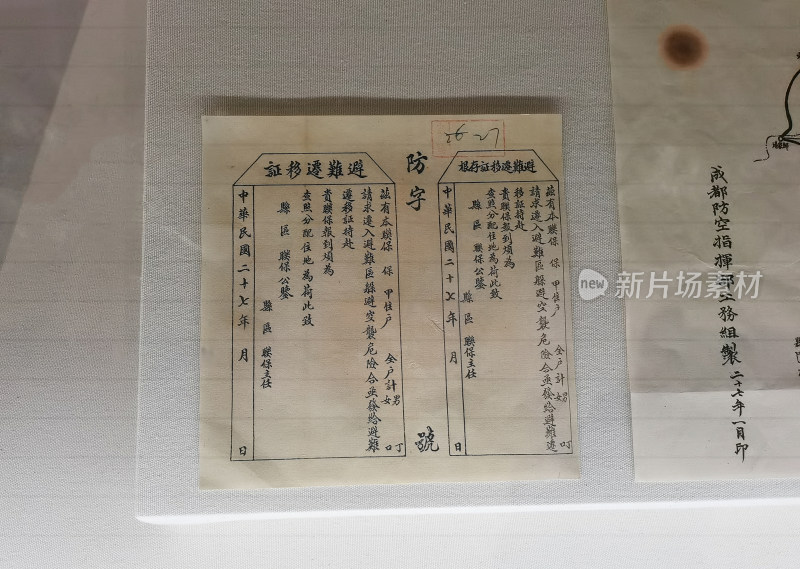 成都防空指揮部工務組製 二十七年一月印
26-27
避難遷移証存根
茲有本聯保 保 甲住户 全户計男女 丁口
請求遷入避難區躲避空襲危險合亟發給避難遷
移証持赴
貴聯保報到煩為
查照分配住地為荷此致
縣 區 聯保公鑒
縣 區 聯保主任
中華民國二十七年 月 日
防字 號
避難遷移証
茲有本聯保 保 甲住户 全户計男女 丁口
請求遷入避難區躲避空襲危險合亟發給避難
遷移証持赴
貴聯保報到煩為
查照分配住地為荷此致
縣 區 聯保公鑒
縣 區 聯保主任
中華民國二十七年 月 日
new 新片场素材